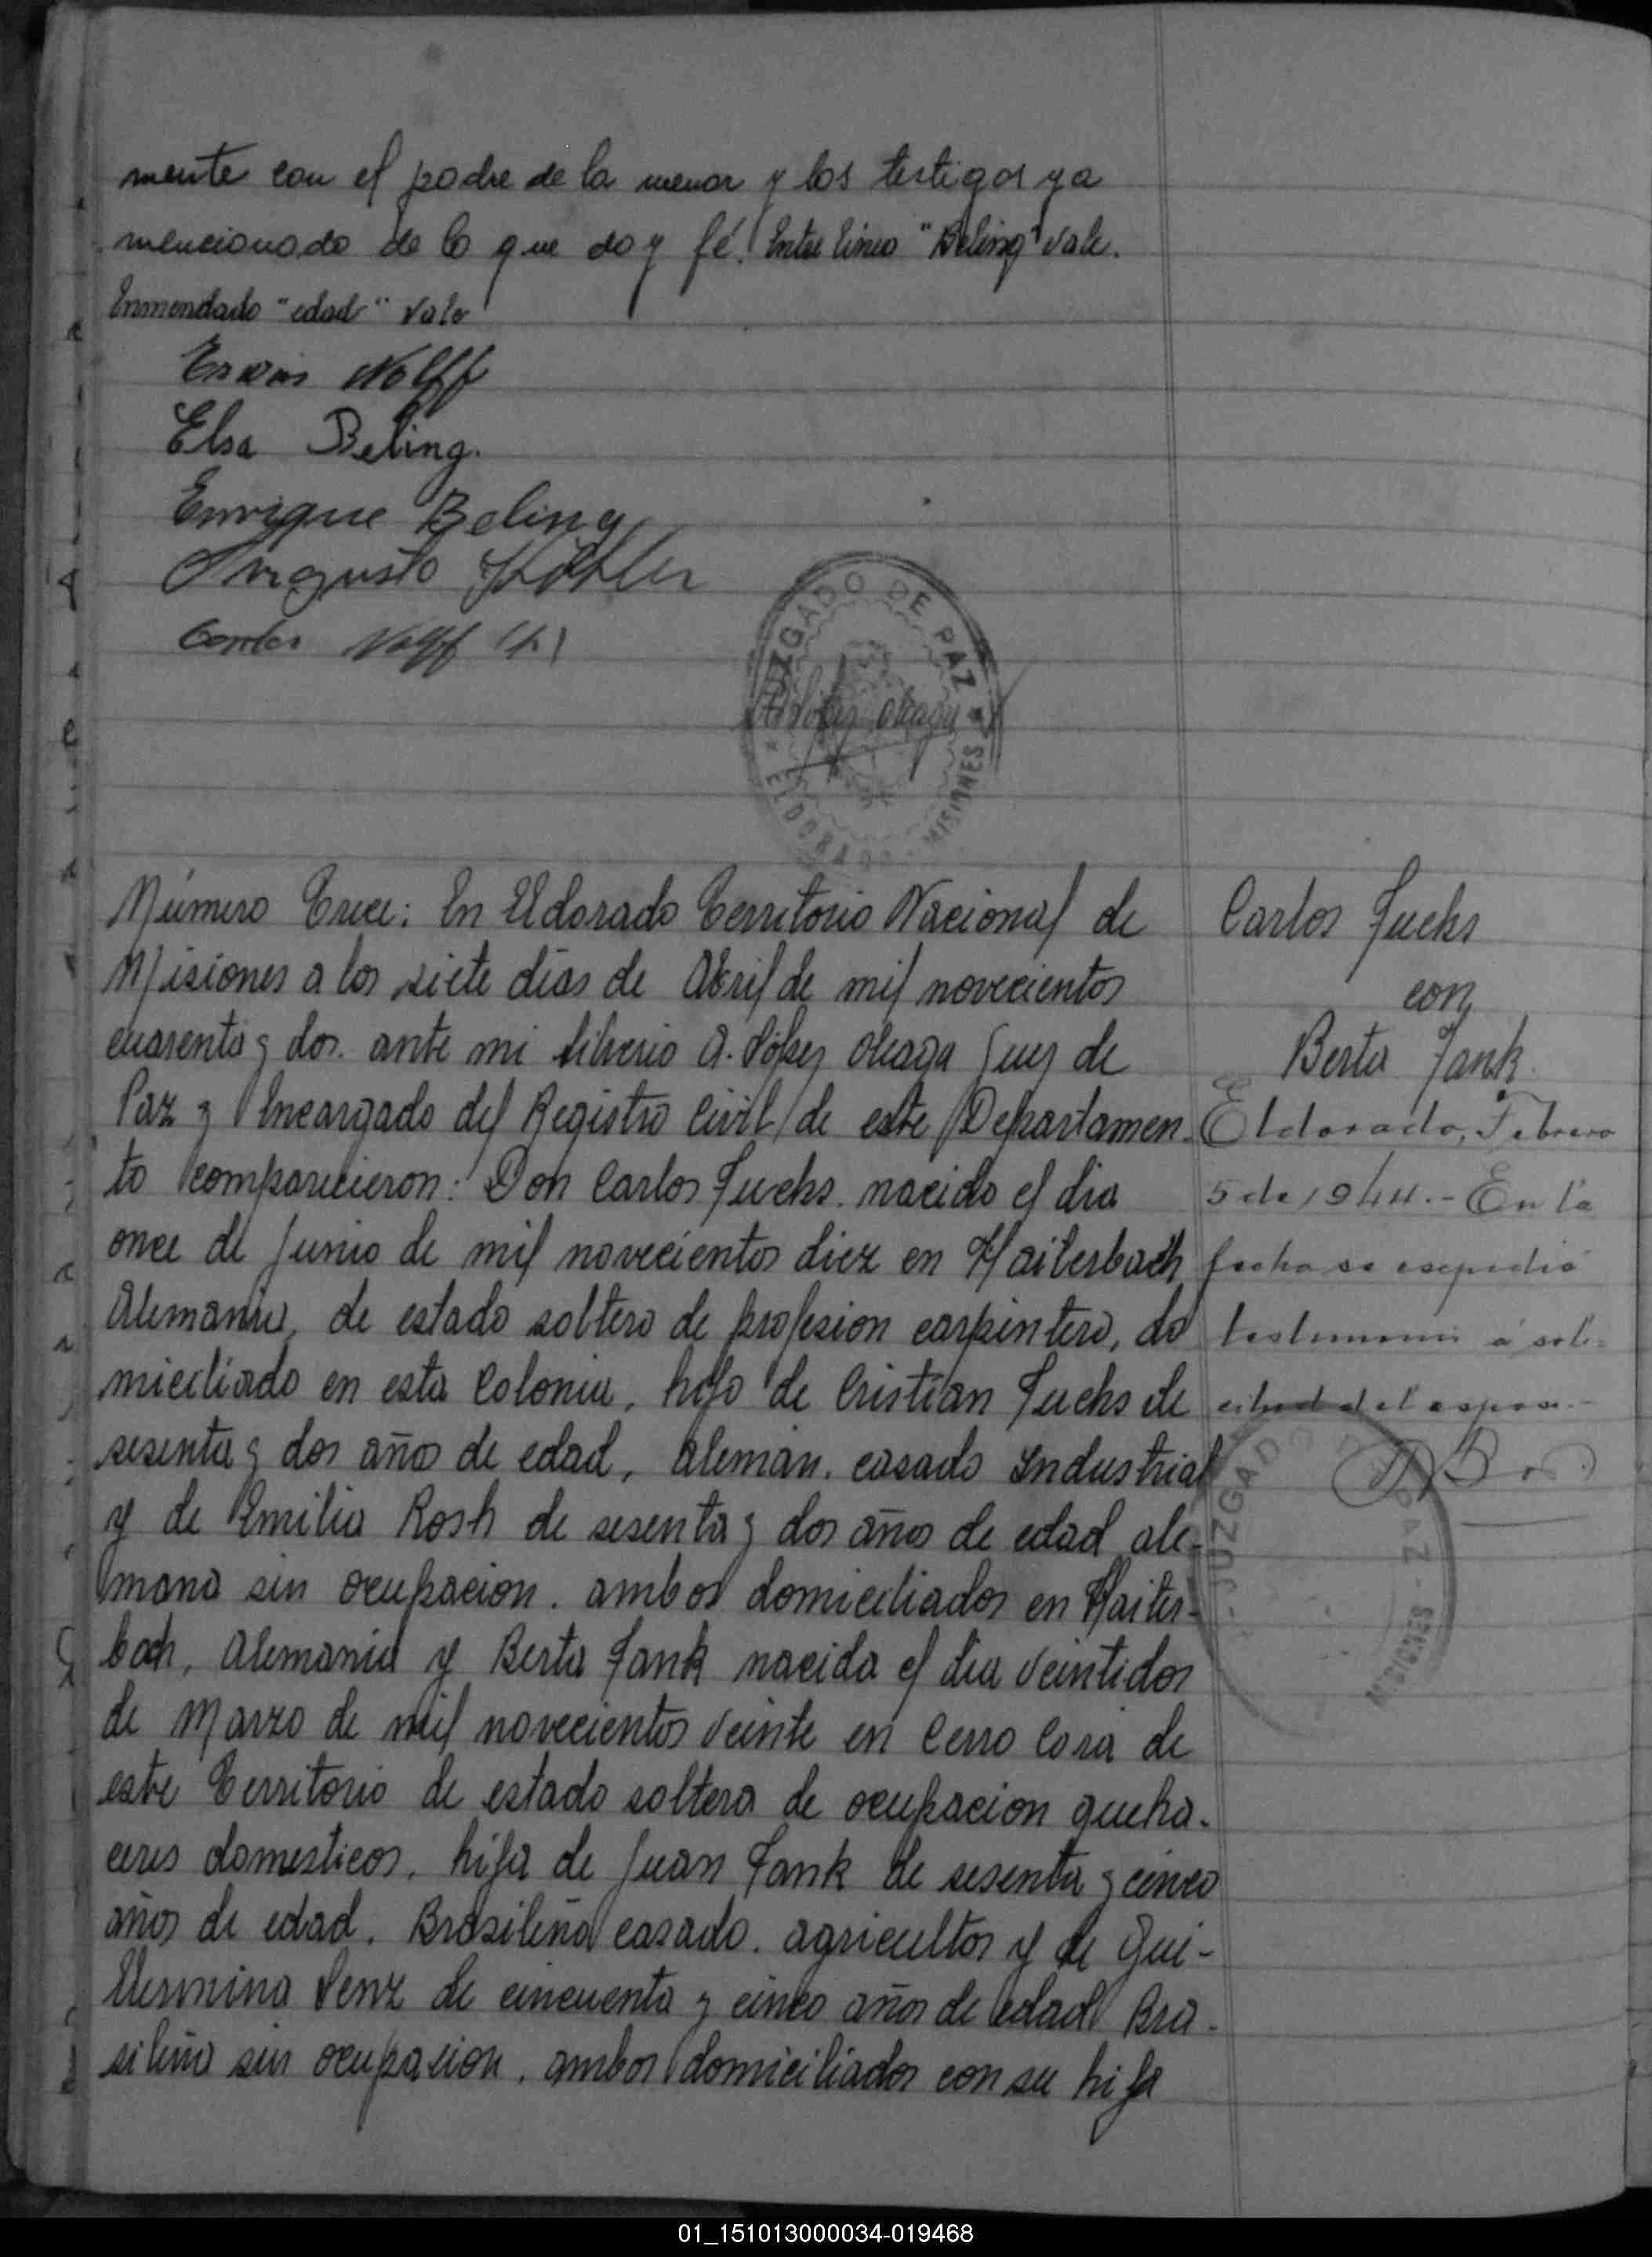 mente con el padre de la menor y los testigos ya
mencionado de lo que doy fé. Entre lineo "Beling" vale.
Enmendado "edad" Vale
Erwin Wolff
Elsa Beling.
Enrique Beling
Augusto
Carlos Wolff (h)
JUZGADO DE PAZ
ELDORADO - MISIONES
Número Trece: En Eldorado Territorio Nacional de
Misiones a los siete dias de Abril de mil novecientos
cuarenta y dos. ante mi Liborio A. López Aleaga Juez de
Paz y Encargado del Registro Civil de este Departamen-
to comparecieron: Don Carlos Fuchs. nacido el dia
once de Junio de mil novecientos diez en Haiterbach
Alemania, de estado soltero de profesion carpintero, do
miciliado en esta Colonia, hijo de Cristian Fuchs de
sesenta y dos año de edad, Alemán. casado Industrial
y de Emilia Rosh de sesenta y dos años de edad ale-
mana sin ocupacion. ambos domiciliados en Haiter-
bach, Alemania y Berta Fank nacida el dia veintidos
de Marzo de mil novecientos veinte en Cerro Corá de
este Territorio de estado soltera de ocupacion queha-
ceres domesticos, hija de Juan Fank de sesenta y cinco
años de edad. Brasileño casado. agricultor y de Gui-
llermina Lenz de cincuenta y cinco años de edad Bra-
sileña sin ocupacion. ambos domiciliados con su hija
Carlos Fuchs
con
Berta Fank
Eldorado, Febrero
5 de 1944.- En la
fecha se expidió
testimonio á soli-
citud del esposo.-
JUZGADO DE PAZ - MISIONES
01_151013000034-019468